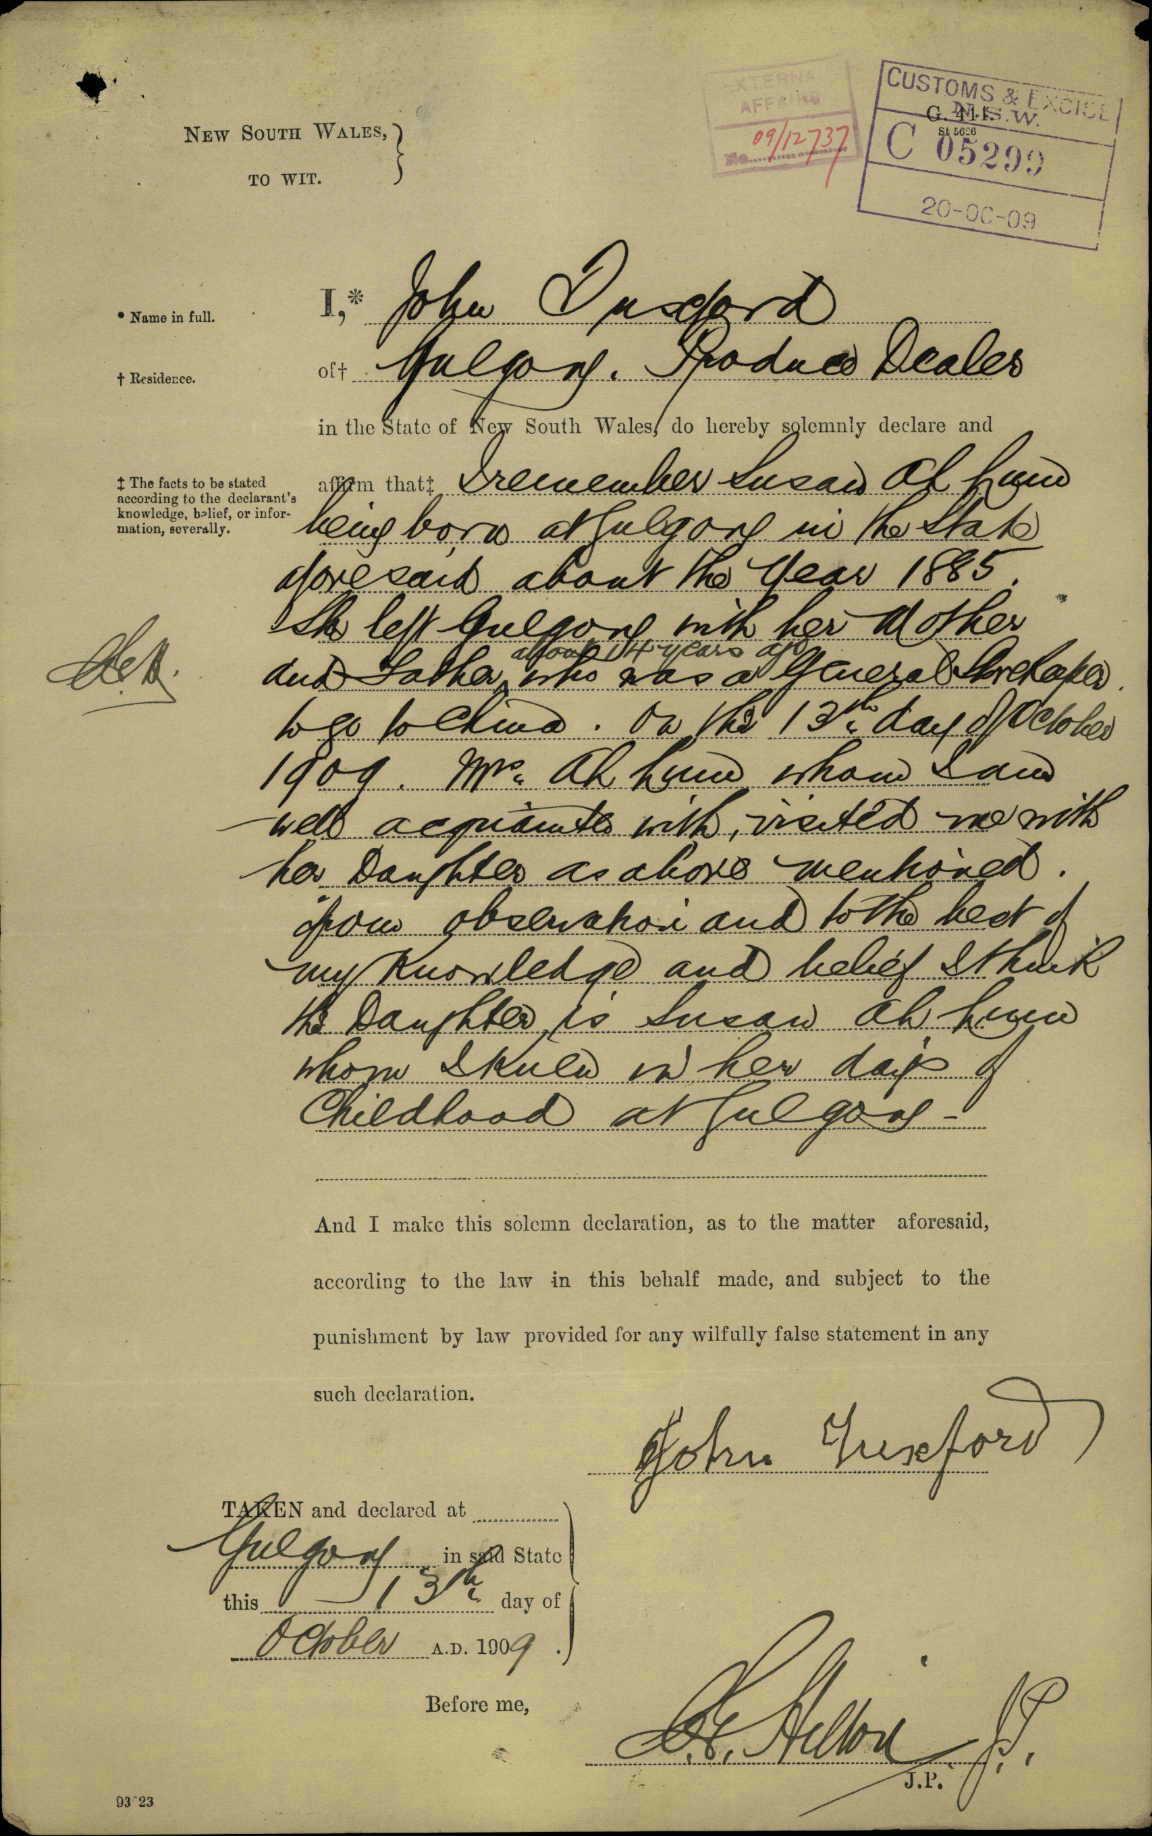 EXTERNAL
AFFAIRS
No. 09/12737
CUSTOMS & EXCISE
N.S.W.
C 05299
20-OC-09
NEW SOUTH WALES,
TO WIT.
* Name in full.
I,* John Tuxford
† Residence.
of† Gulgong. Produce Dealer
in the State of New South Wales, do hereby solemnly declare and
‡ The facts to be stated
according to the declarant's
knowledge, belief, or infor-
mation, severally.
affirm that‡ I remember Susan Ah Lum
being born at Gulgong in the State
aforesaid about the Year 1885.
She left Gulgong with her Mother
about 14 years ago
and Father, who was a General Storekeeper
to go to China. On the 13th day of October
1909. Mrs. Ah Lum whom I am
well acquainted with, visited me with
her Daughter as above mentioned.
from observation and to the best of
my Knowledge and belief I think
the Daughter is Susan Ah Lum
whom I knew in her days of
Childhood at Gulgong -
And I make this solemn declaration, as to the matter aforesaid,
according to the law in this behalf made, and subject to the
punishment by law provided for any wilfully false statement in any
such declaration.
John Tuxford
TAKEN and declared at
Gulgong in said State
this 13th day of
October A.D. 1909.
Before me,
Hilton J.P.
J.P.
93 23